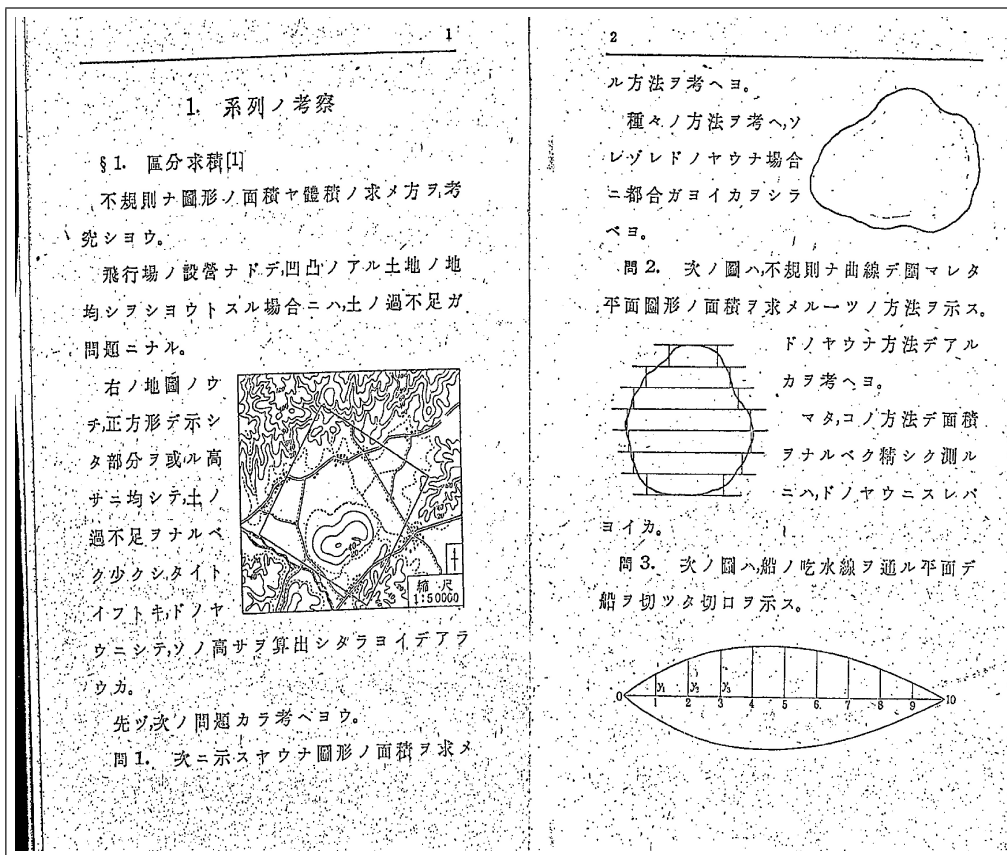 1
1. 系列ノ考察
§1. 區分求積[1]
不規則ナ圖形ノ面積ヤ體積ノ求メ方ヲ考
究シヨウ。
飛行場ノ設營ナドデ,凹凸ノアル土地ノ地
均シヲショウトスル場合ニハ,土ノ過不足ガ
問題ニナル。
右ノ地圖ノウ
チ,正方形デ示シ
タ部分ヲ或ル高
サニ均シテ,土ノ
過不足ヲナルベ
ク少クシタイト
イフトキ,ドノヤ
ウニシテ,ソノ高サヲ算出シタラヨイデアラ
ウカ。
縮尺
1:50000
先ヅ,次ノ問題カラ考ヘヨウ。
問1. 次ニ示スヤウナ圖形ノ面積ヲ求メ
2
ル方法ヲ考ヘヨ。
種々ノ方法ヲ考ヘ,ソ
レゾレドノヤウナ場合
ニ都合ガヨイカヲシラ
ベヨ。
問2. 次ノ圖ハ,不規則ナ曲線デ圍マレタ
平面圖形ノ面積ヲ求メル一ツノ方法ヲ示ス。
ドノヤウナ方法デアル
カヲ考ヘヨ。
マタ,コノ方法デ面積
ヲナルベク精シク測ル
ニハ,ドノヤウニスレバ
ヨイカ。
問3. 次ノ圖ハ,船ノ吃水線ヲ通ル平面デ
船ヲ切ツタ切口ヲ示ス。
y₁ y₂ y₃
0 1 2 3 4 5 6 7 8 9 10